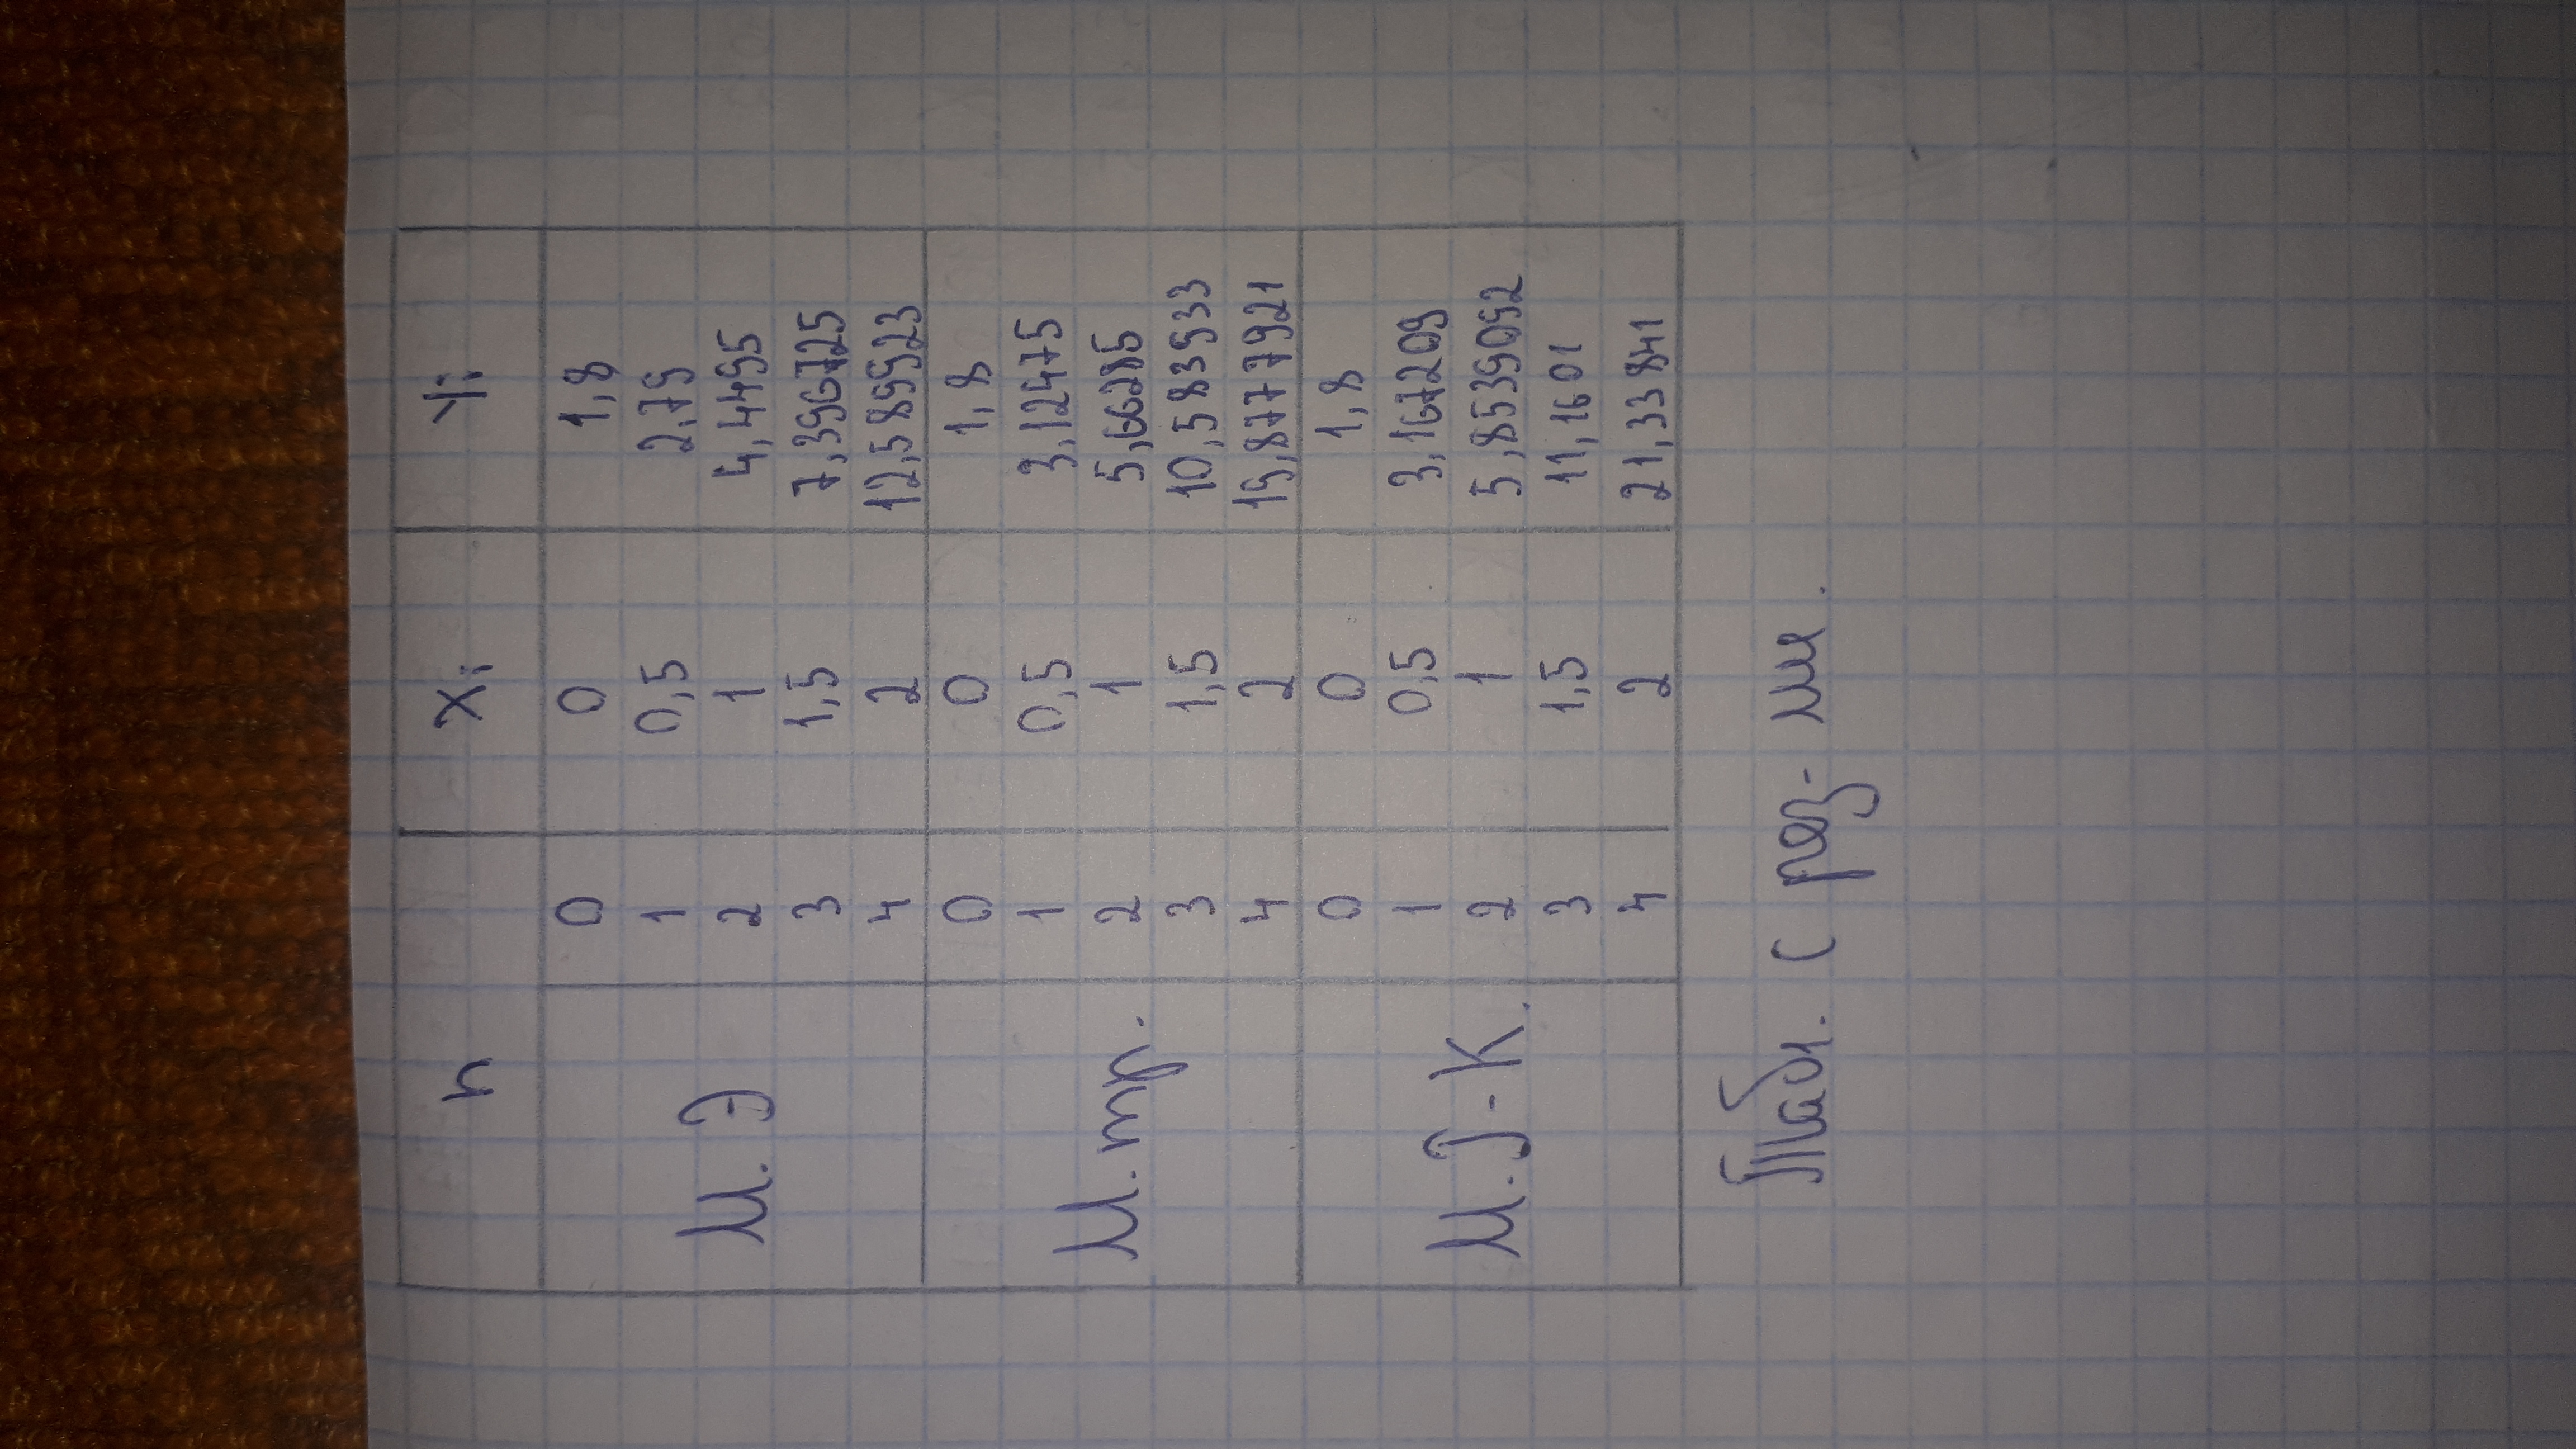 n Xi Yi
0 0 1,8
1 0,5 2,79
М. Э 2 1 4,4495
3 1,5 7,396725
4 2 12,589923
0 0 1,8
1 0,5 3,12475
М. тр. 2 1 5,66285
3 1,5 10,583933
4 2 19,8777921
0 0 1,8
1 0,5 3,167209
М. Р-К. 2 1 5,8539092
3 1,5 11,1601
4 2 21,33841
Табл. с рез-ми.